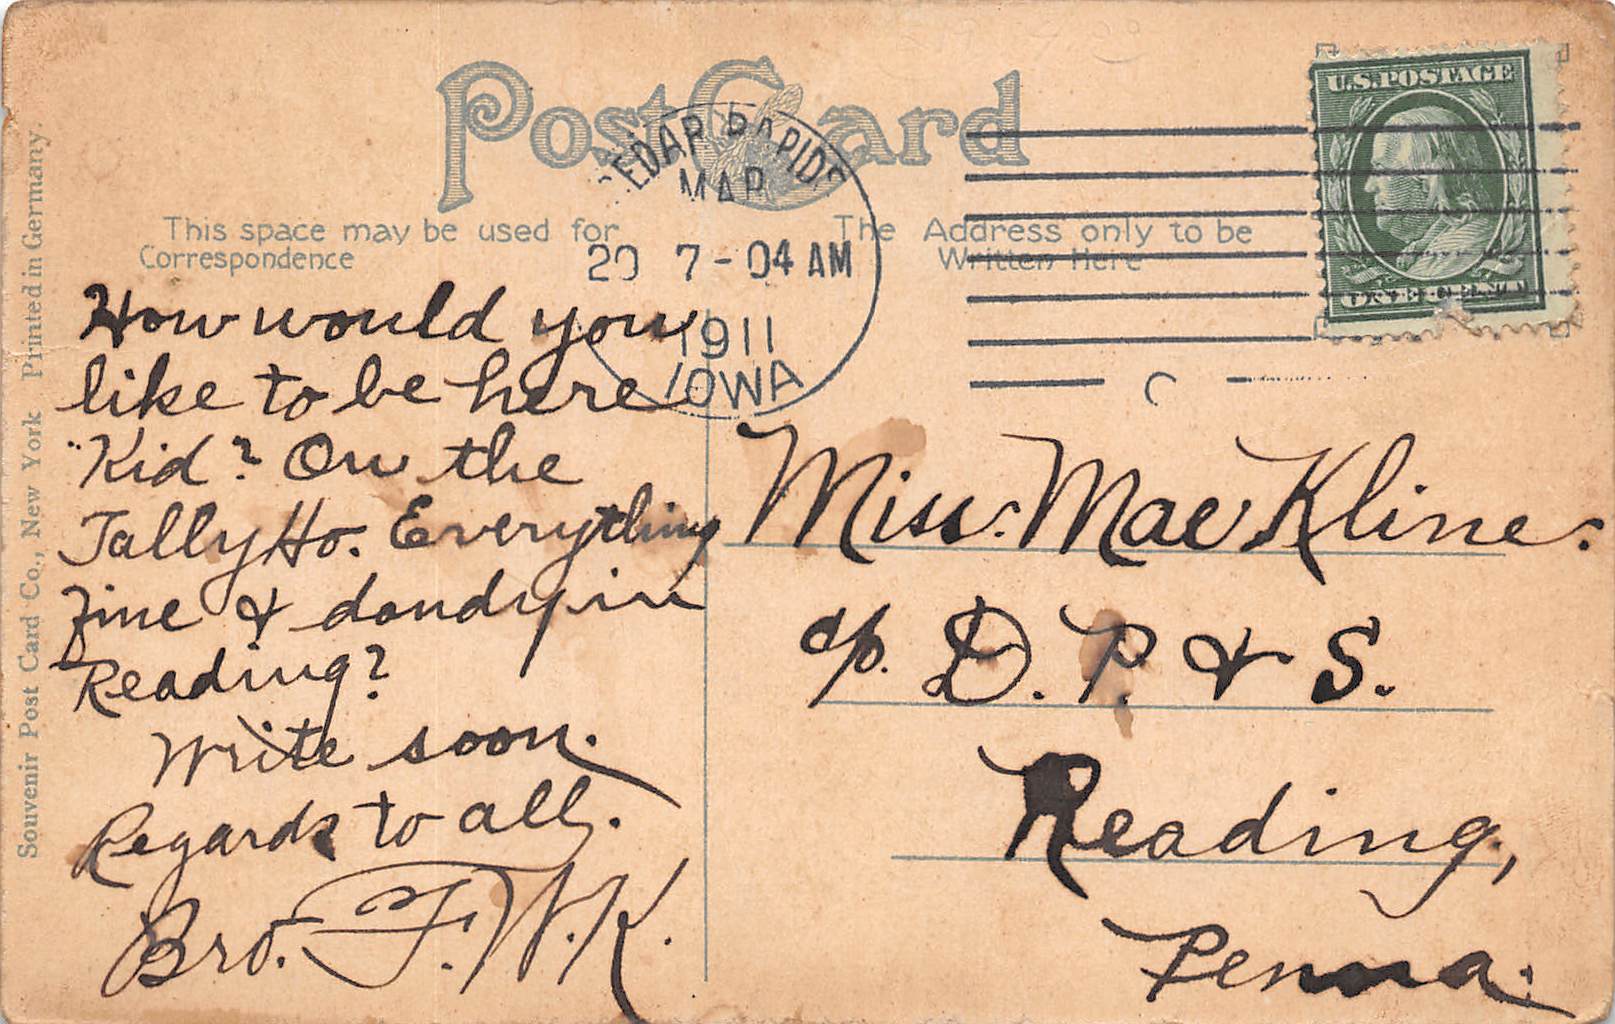 Post Card
U.S. POSTAGE
ONE CENT
CEDAR RAPIDS
MAR
20 7-04 AM
1911
IOWA
This space may be used for
Correspondence
The Address only to be
Written Here
How would you
like to be here
"Kid? On the
Tally Ho. Everything
fine & dandy in
Reading?
Write soon.
Regards to all.
Bro. F.W.K.
Miss. Mae Kline.
c/o. D. P. & S.
Reading,
Penna.
Souvenir Post Card Co., New York Printed in Germany.